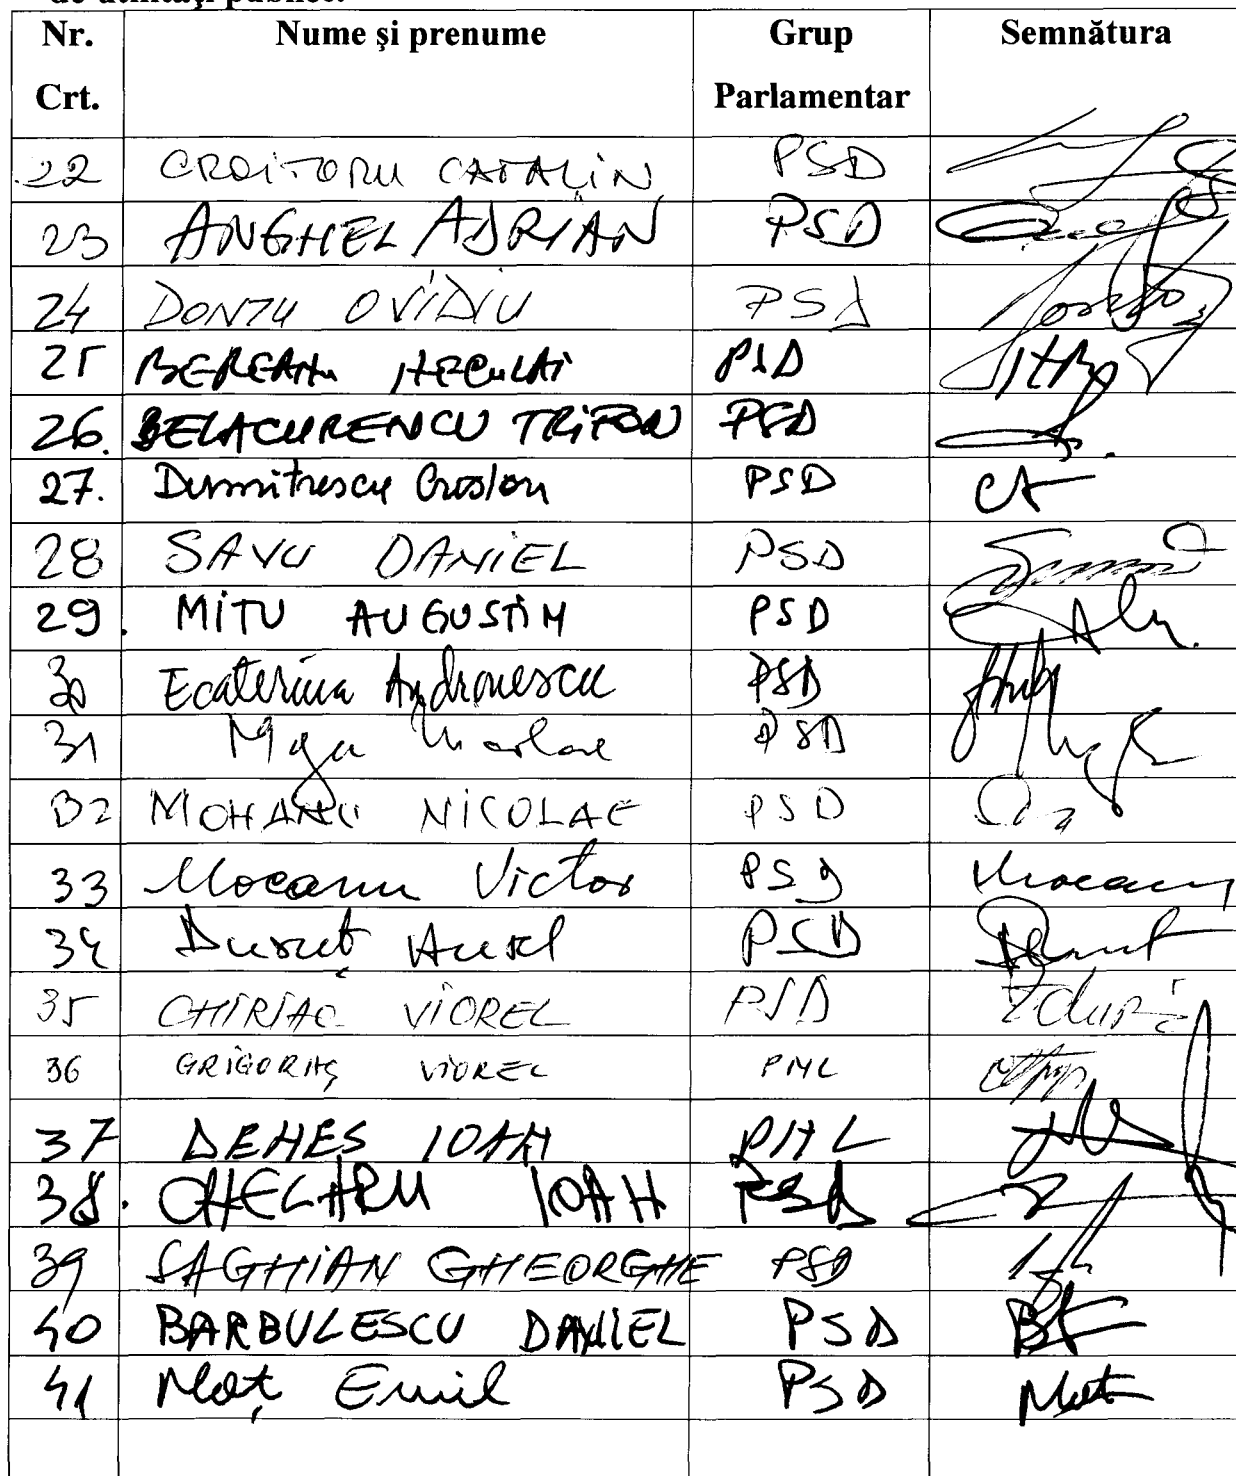 de utilităţi publice.
Nr. Crt. Nume şi prenume Grup Parlamentar Semnătura
22 CROITORU CATALIN PSD
23 ANGHEL ADRIAN PSD
24 DONŢU OVIDIU PSD
25 BEREANU NECULAI PSD
26. BELACURENCU TRIFON PSD
27. Dumitrescu Cristian PSD
28 SAVU DANIEL PSD
29. MITU AUGUSTIN PSD
30 Ecaterina Andronescu PSD
31 PSD
32 MOHANU NICOLAE PSD
33 Mocanu Victor PSD Mocanu
34 Duruţ Aurel PSD
35 CHIRIAC VIOREL PSD
36 GRIGORAŞ VIOREL PNL
37 DENES IOAN PNL
38. CHELARU IOAN PSD
39 SAGHIAN GHEORGHE PSD
40 BARBULESCU DANIEL PSD
41 Maţ Emil PSD